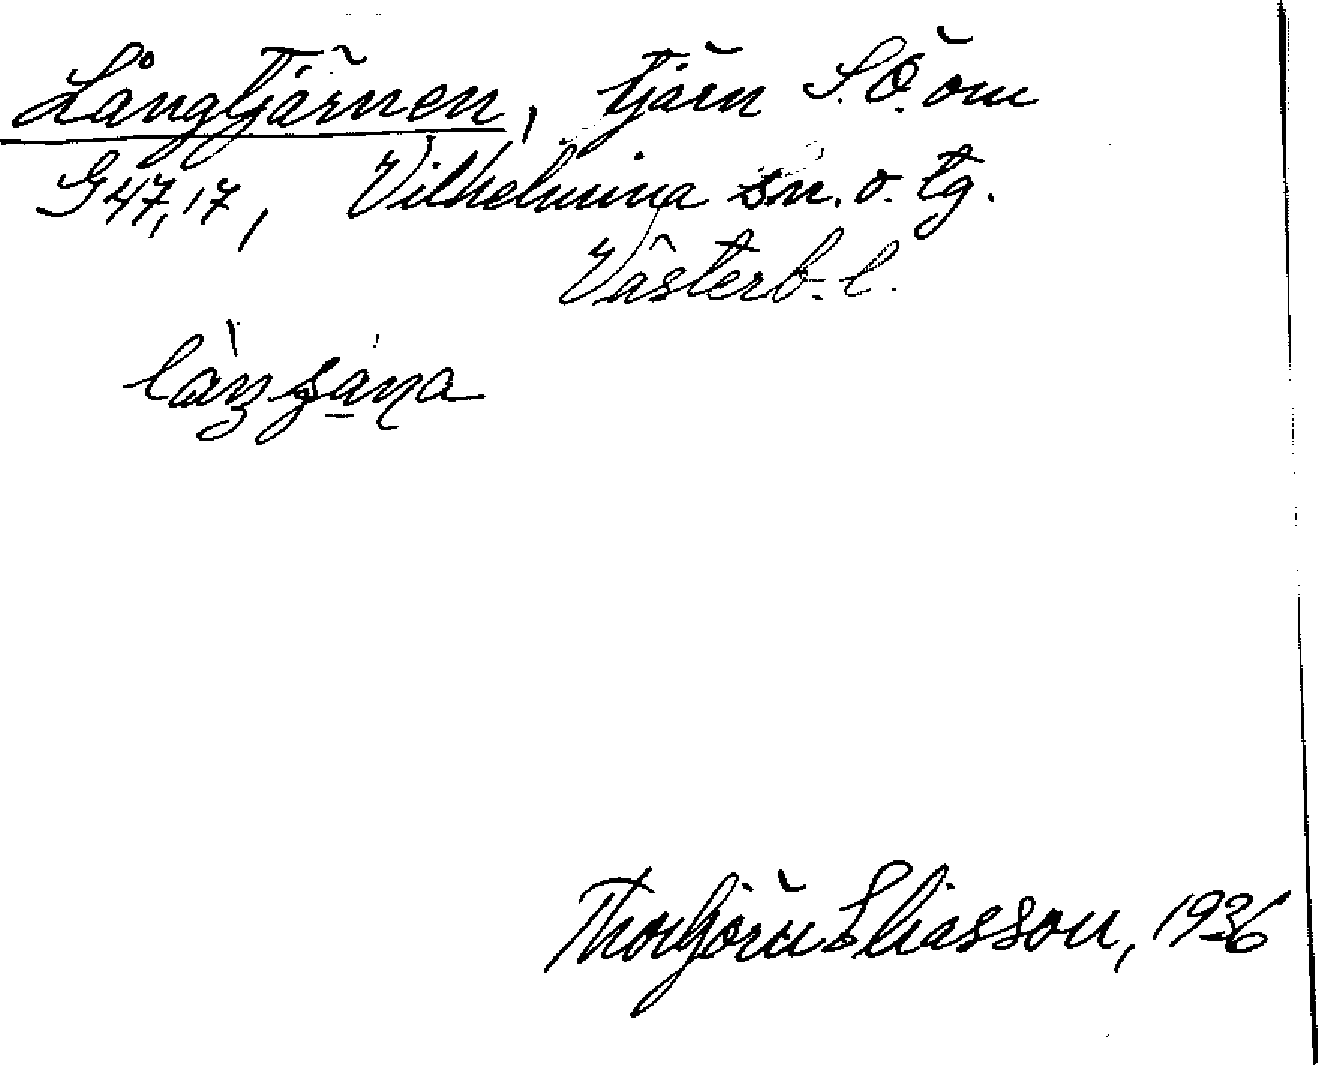 Långtjärnen, tjärn S.Ö. om
G 47,17, Vilhelmina sn. o. tg.
Västerb. l.
Thorbjörn Eliasson, 1936